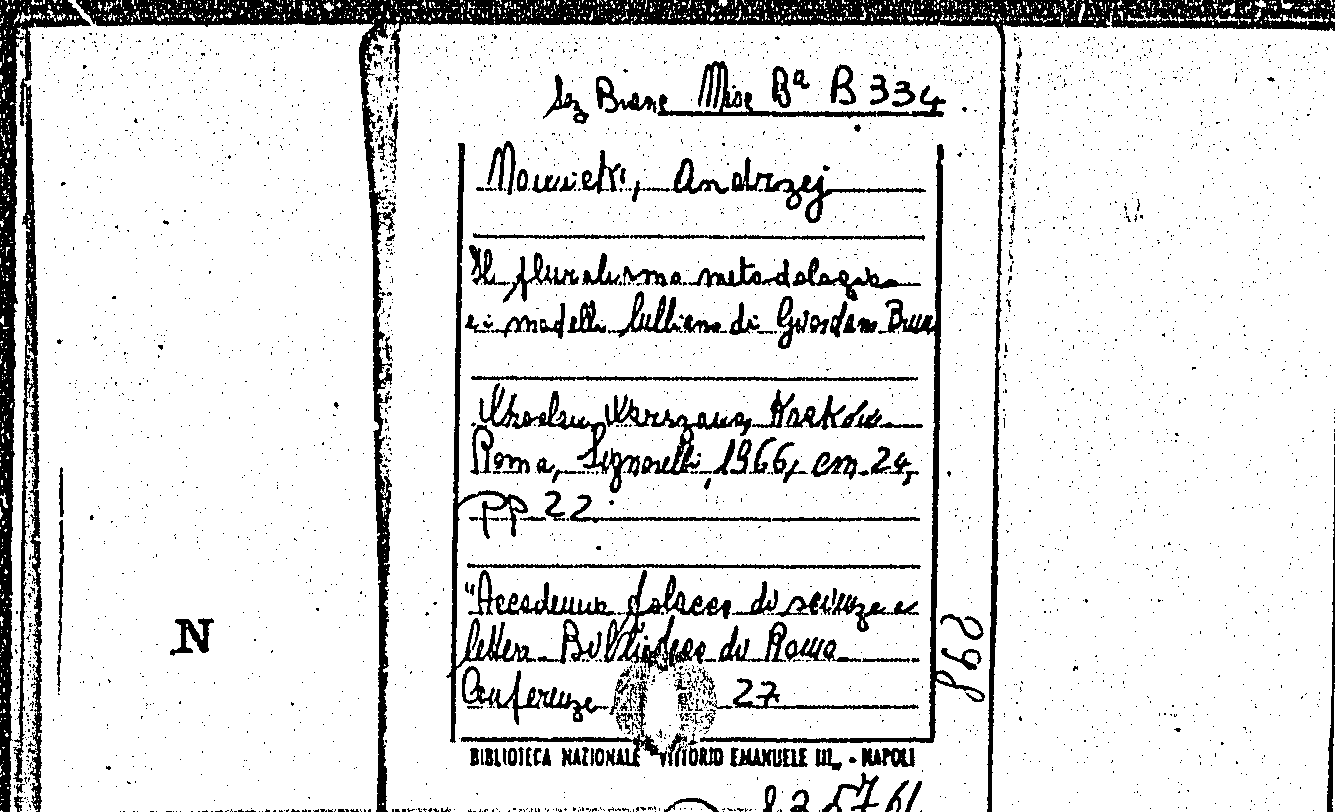 Sez Branc Misc Bª B 334
Nowicki, Andrzej
Il pluralismo metodologico
e i modelli lulliani di Giordano Bruno
Wroclaw, Warszawa, Krakòw
Roma, Signorelli, 1966, cm. 24,
pp 22
"Accademia polacca di scienze e
lettere Biblioteca di Roma
Conferenze 27
868
BIBLIOTECA NAZIONALE VITTORIO EMANUELE III - NAPOLI
N